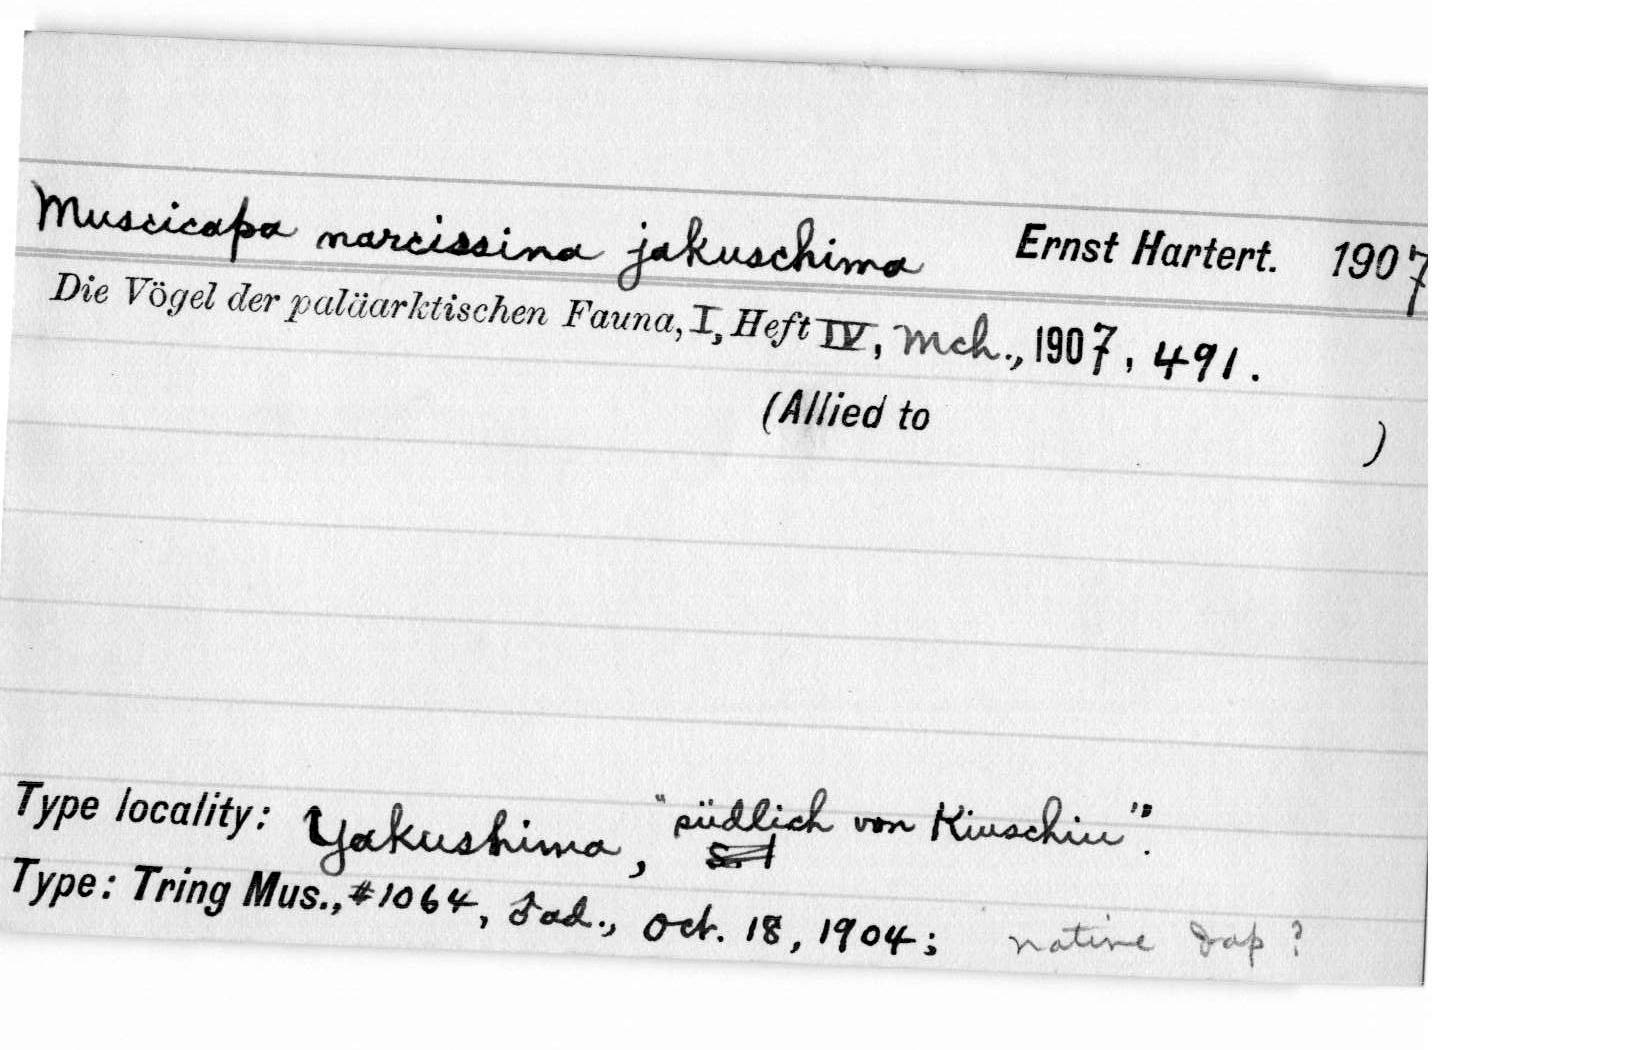 Muscicapa narcissina jakuschima Ernst Hartert. 1907
Die Vögel der paläarktischen Fauna, I, Heft IV, Mch., 1907, 491.
(Allied to )
Type locality: Yakushima, "südlich von Kiuschiu".
Type: Tring Mus., #1064, ♂ ad., Oct. 18, 1904; native Jap?